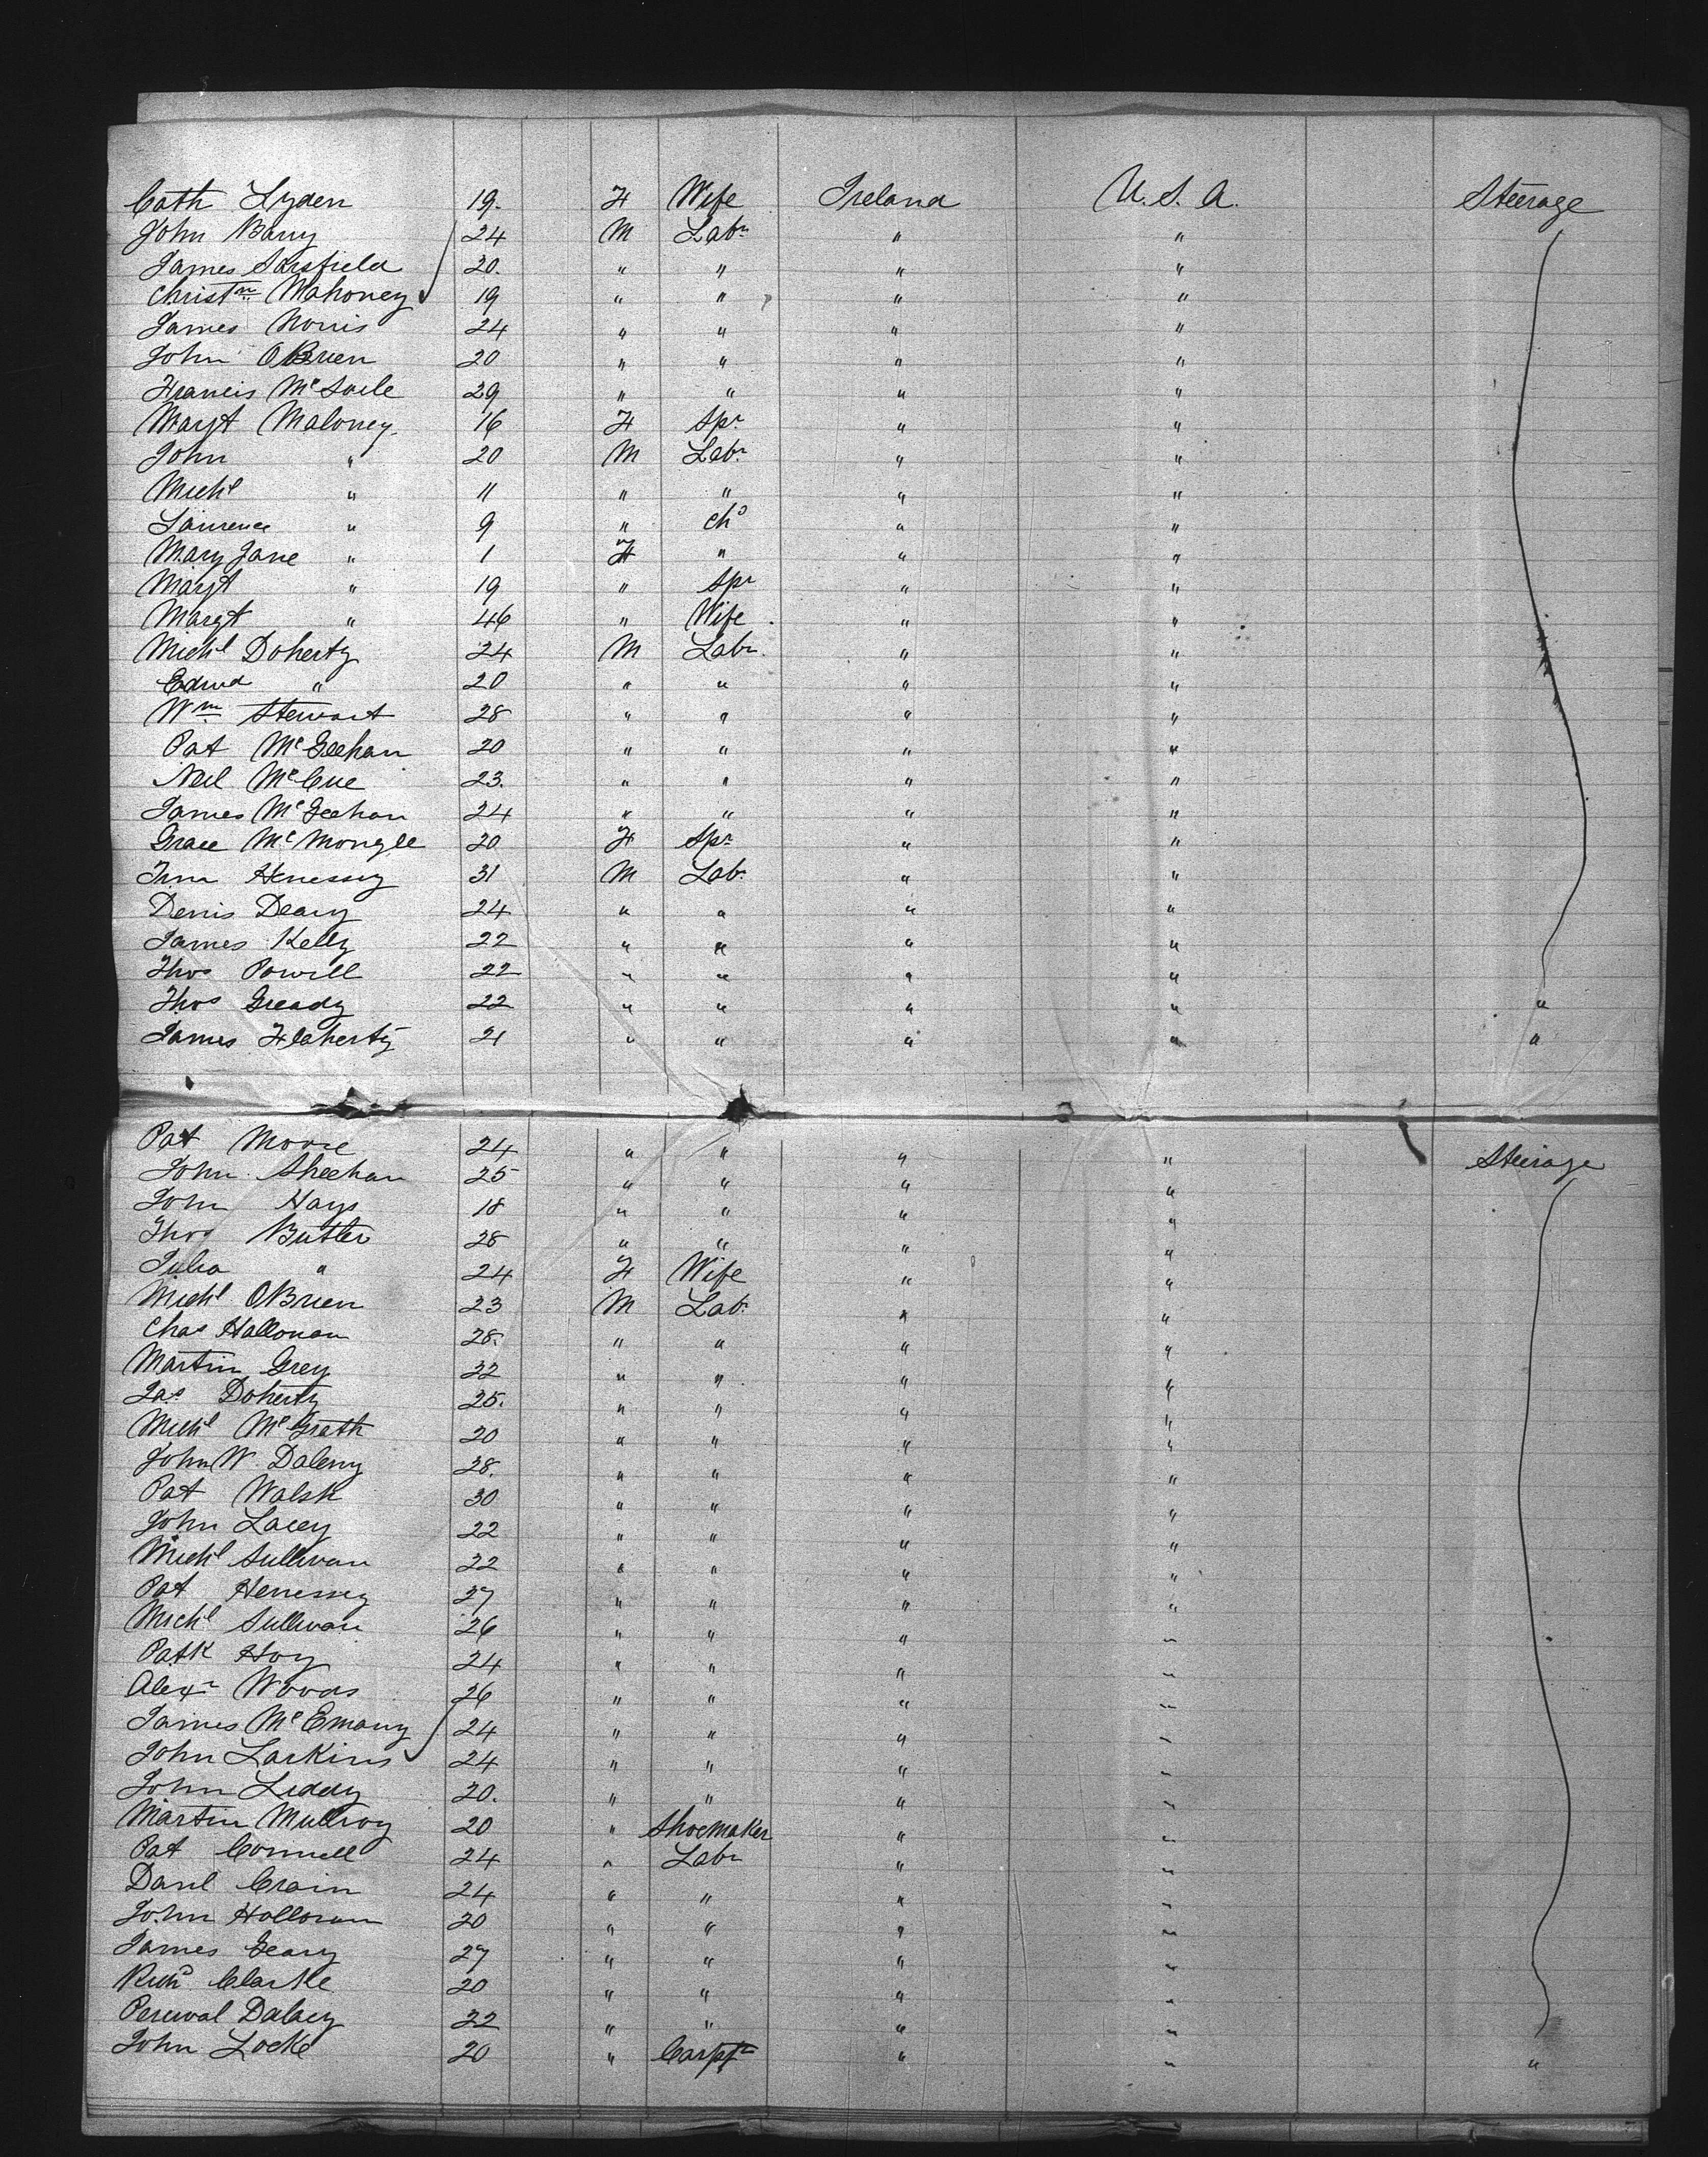 Cath Lyden 19. F Wife Ireland U.S.A. Steerage
John Barry 24 M Labr " "
James Sarsfield 20. " " " "
Christn Mahoney 19 " " " "
James Norris 24 " " " "
John OBrien 20 " " " "
Francis McSorle 29 " " " "
Margt Maloney. 16 F Spr " "
John " 20 M Labr " "
Michl " 11 " " " "
Laurence " 9 " chd " "
Mary Jane " 1 F " " "
Margt " 19 " Spr " "
Margt " 46 " Wife " "
Michl Doherty 24 M Labr. " "
Edmd " 20 " " " "
Wm Stewart 28 " " " "
Pat McGeehan 20 " " " "
Neil McCue 23. " " " "
James McGeehan 24 " " " "
Grace McMongle 20 F Spr " "
Tim Henessey 31 M Labr " "
Denis Deary 24 " " " "
James Kelly 22 " " " "
Thos Powell 22 " " " "
Thos Gready 22 " " " " "
James Flaherty 21 " " " " "
Pat Moore 24 " " " " Steerage
John Sheehan 25 " " " "
John Hays 18 " " " "
Thos Butler 28 " " " "
Julia " 24 F Wife " "
Michl OBrien 23 M Labr " "
Chas Hallonan 28. " " " "
Martin Grey 22 " " " "
Jas Doherty 25. " " " "
Michl McGrath 20 " " " "
John W. Daleny 28. " " " "
Pat Walsh 30 " " " "
John Lacey 22 " " " "
Michl Sullivan 22 " " " "
Pat Henessey 27 " " " "
Michl Sullivan 26 " " " "
Patk Hoy 24 " " " "
Alexr Woods 26 " " " "
James McEmany 24 " " " "
John Larkins 24 " " " "
John Liddy 20. " " " "
Martin Mulroy 20 " Shoemaker " "
Pat Connell 24 " Labr " "
Danl Crain 24 " " " "
John Holloran 20 " " " "
James Geary 27 " " " "
Richd Clarke 20 " " " "
Percival Dalacy 22 " " " "
John Locke 20 " Carptr " " "